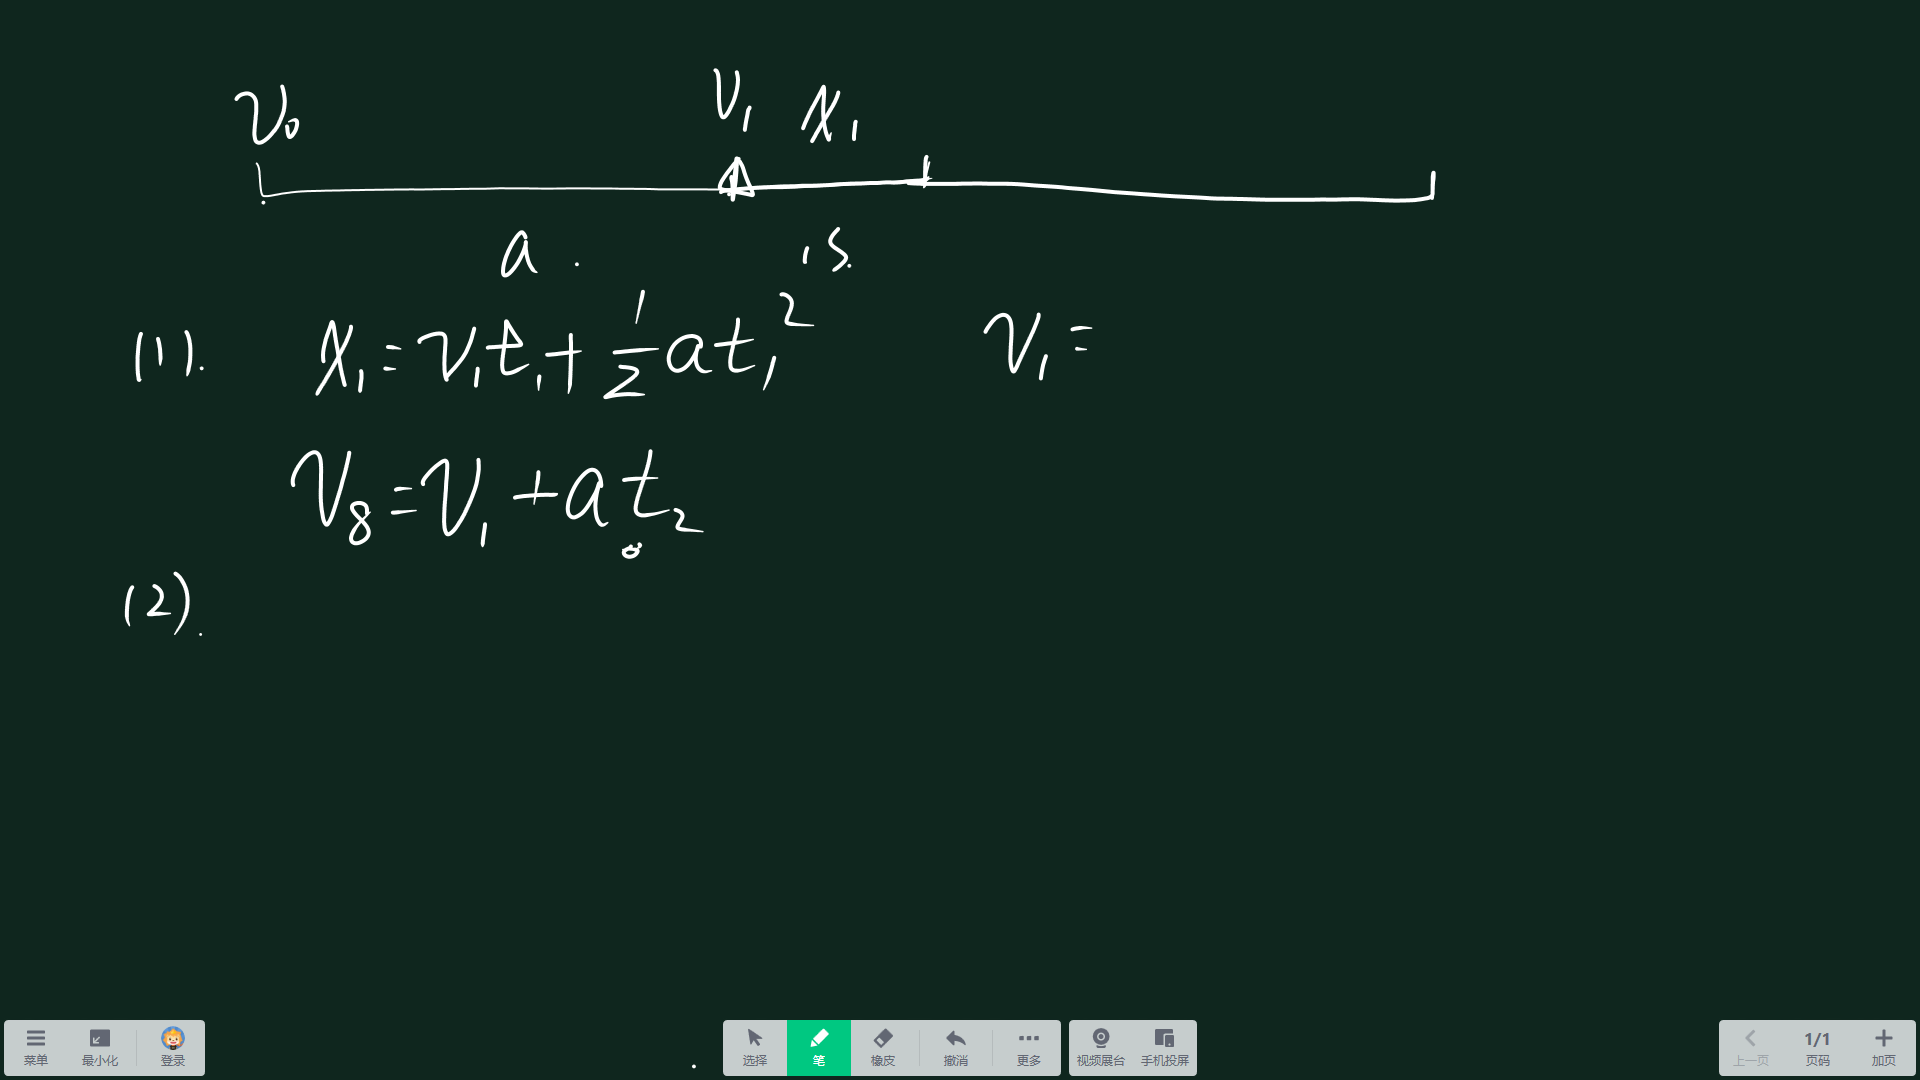 v₀ v₁ x₁
a. 1s.
(1). x₁=v₁t₁+½at₁² v₁=
v₈=v₁+at₂
(2).
菜单 最小化 登录 选择 笔 橡皮 撤消 更多 视频展台 手机投屏 上一页 1/1 页码 加页